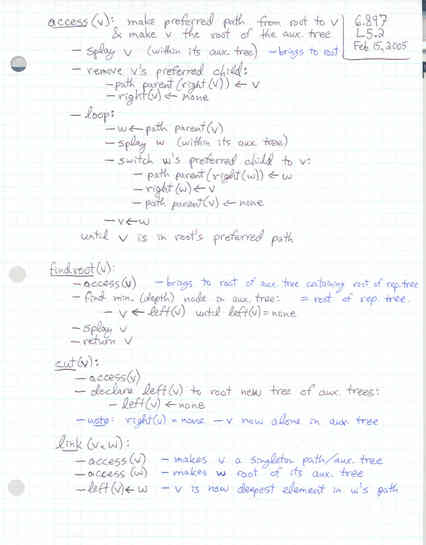 access(v): make preferred path from root to v
& make v the root of the aux. tree
6.897
L5.2
Feb 15, 2005
- splay v (within its aux. tree) - brings to root
- remove v's preferred child:
- path parent(right(v)) ← v
- right(v) ← none
- loop:
- w ← path parent(v)
- splay w (within its aux. tree)
- switch w's preferred child to v:
- path parent(right(w)) ← w
- right(w) ← v
- path parent(v) ← none
- v ← w
until v is in root's preferred path
findroot(v):
- access(v) - brings to root of aux. tree containing root of rep. tree
- find min. (depth) node in aux. tree: = root of rep. tree.
- v ← left(v) until left(v) = none
- splay v
- return v
cut(v):
- access(v)
- declare left(v) to root new tree of aux. trees:
- left(v) ← none
- note: right(v) = none - v now alone in aux. tree
link(v,w):
- access(v) - makes v a singleton path/aux. tree
- access(w) - makes w root of its aux. tree
- left(v) ← w - v is now deepest element in w's path